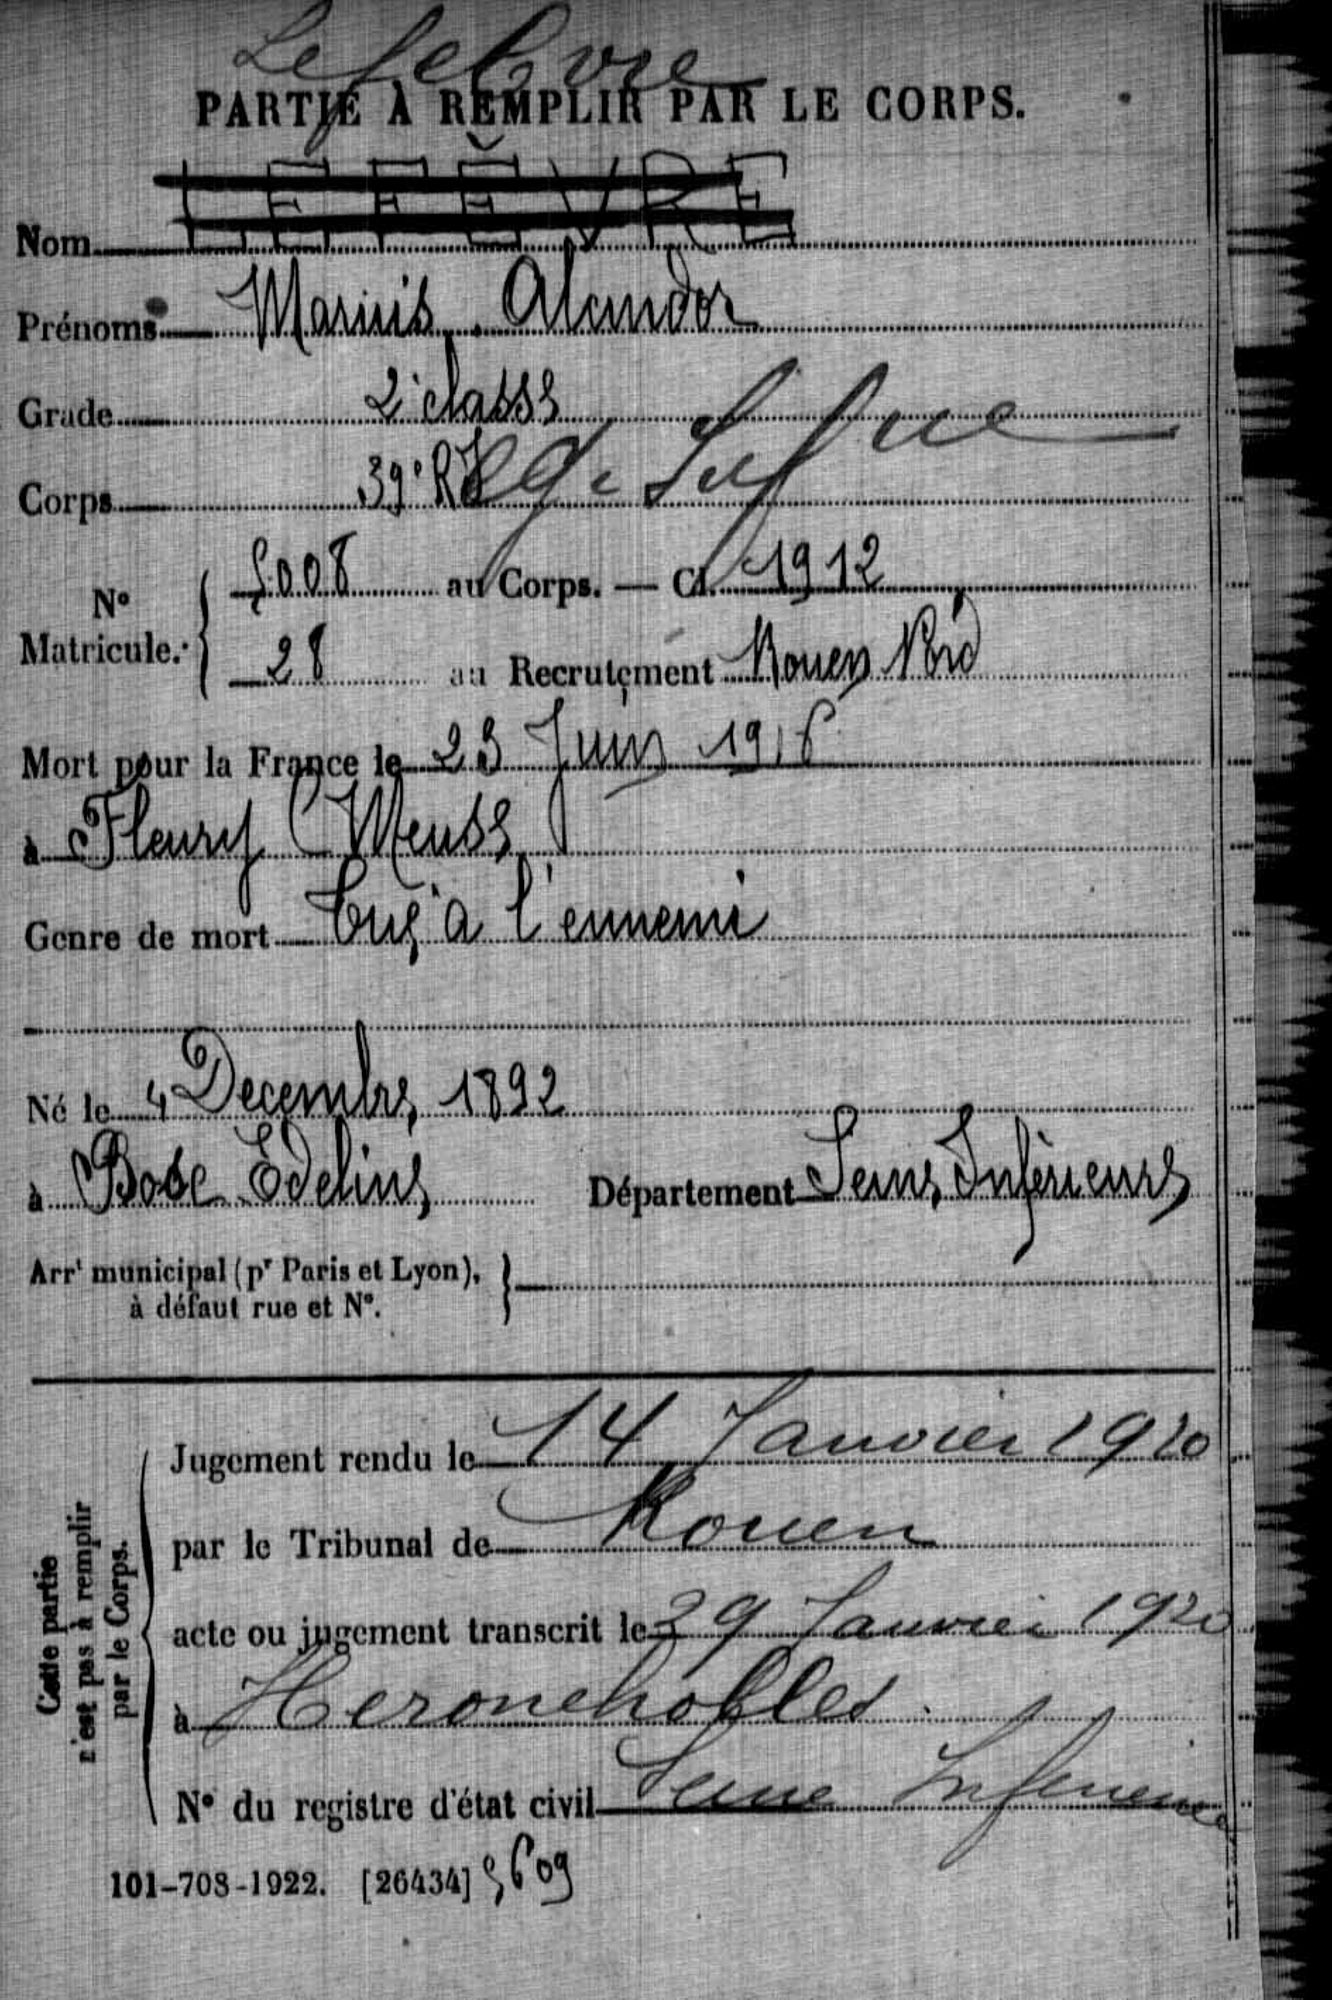 Lefebvre
PARTIE À REMPLIR PAR LE CORPS.
Nom LEFÈVRE
Prénoms Marius Alcindor
Grade 2e classe
Corps 39e RI
N° Matricule. 5008 au Corps. — Cl. 1912
28 au Recrutement Rouen Nord
Mort pour la France le 23 Juin 1916
à Fleury (Meuse)
Genre de mort Tué à l'ennemi
Né le 4 Decembre 1892
à Bosc Edeline Département Seine Inférieure
Arrt municipal (pr Paris et Lyon),
à défaut rue et N°.
Cette partie
n'est pas à remplir
par le Corps.
Jugement rendu le 14 Janvier 1920
par le Tribunal de Rouen
acte ou jugement transcrit le 29 Janvier 1920
à Heronchelles
N° du registre d'état civil Seine Inferieure
101-708-1922. [26434]